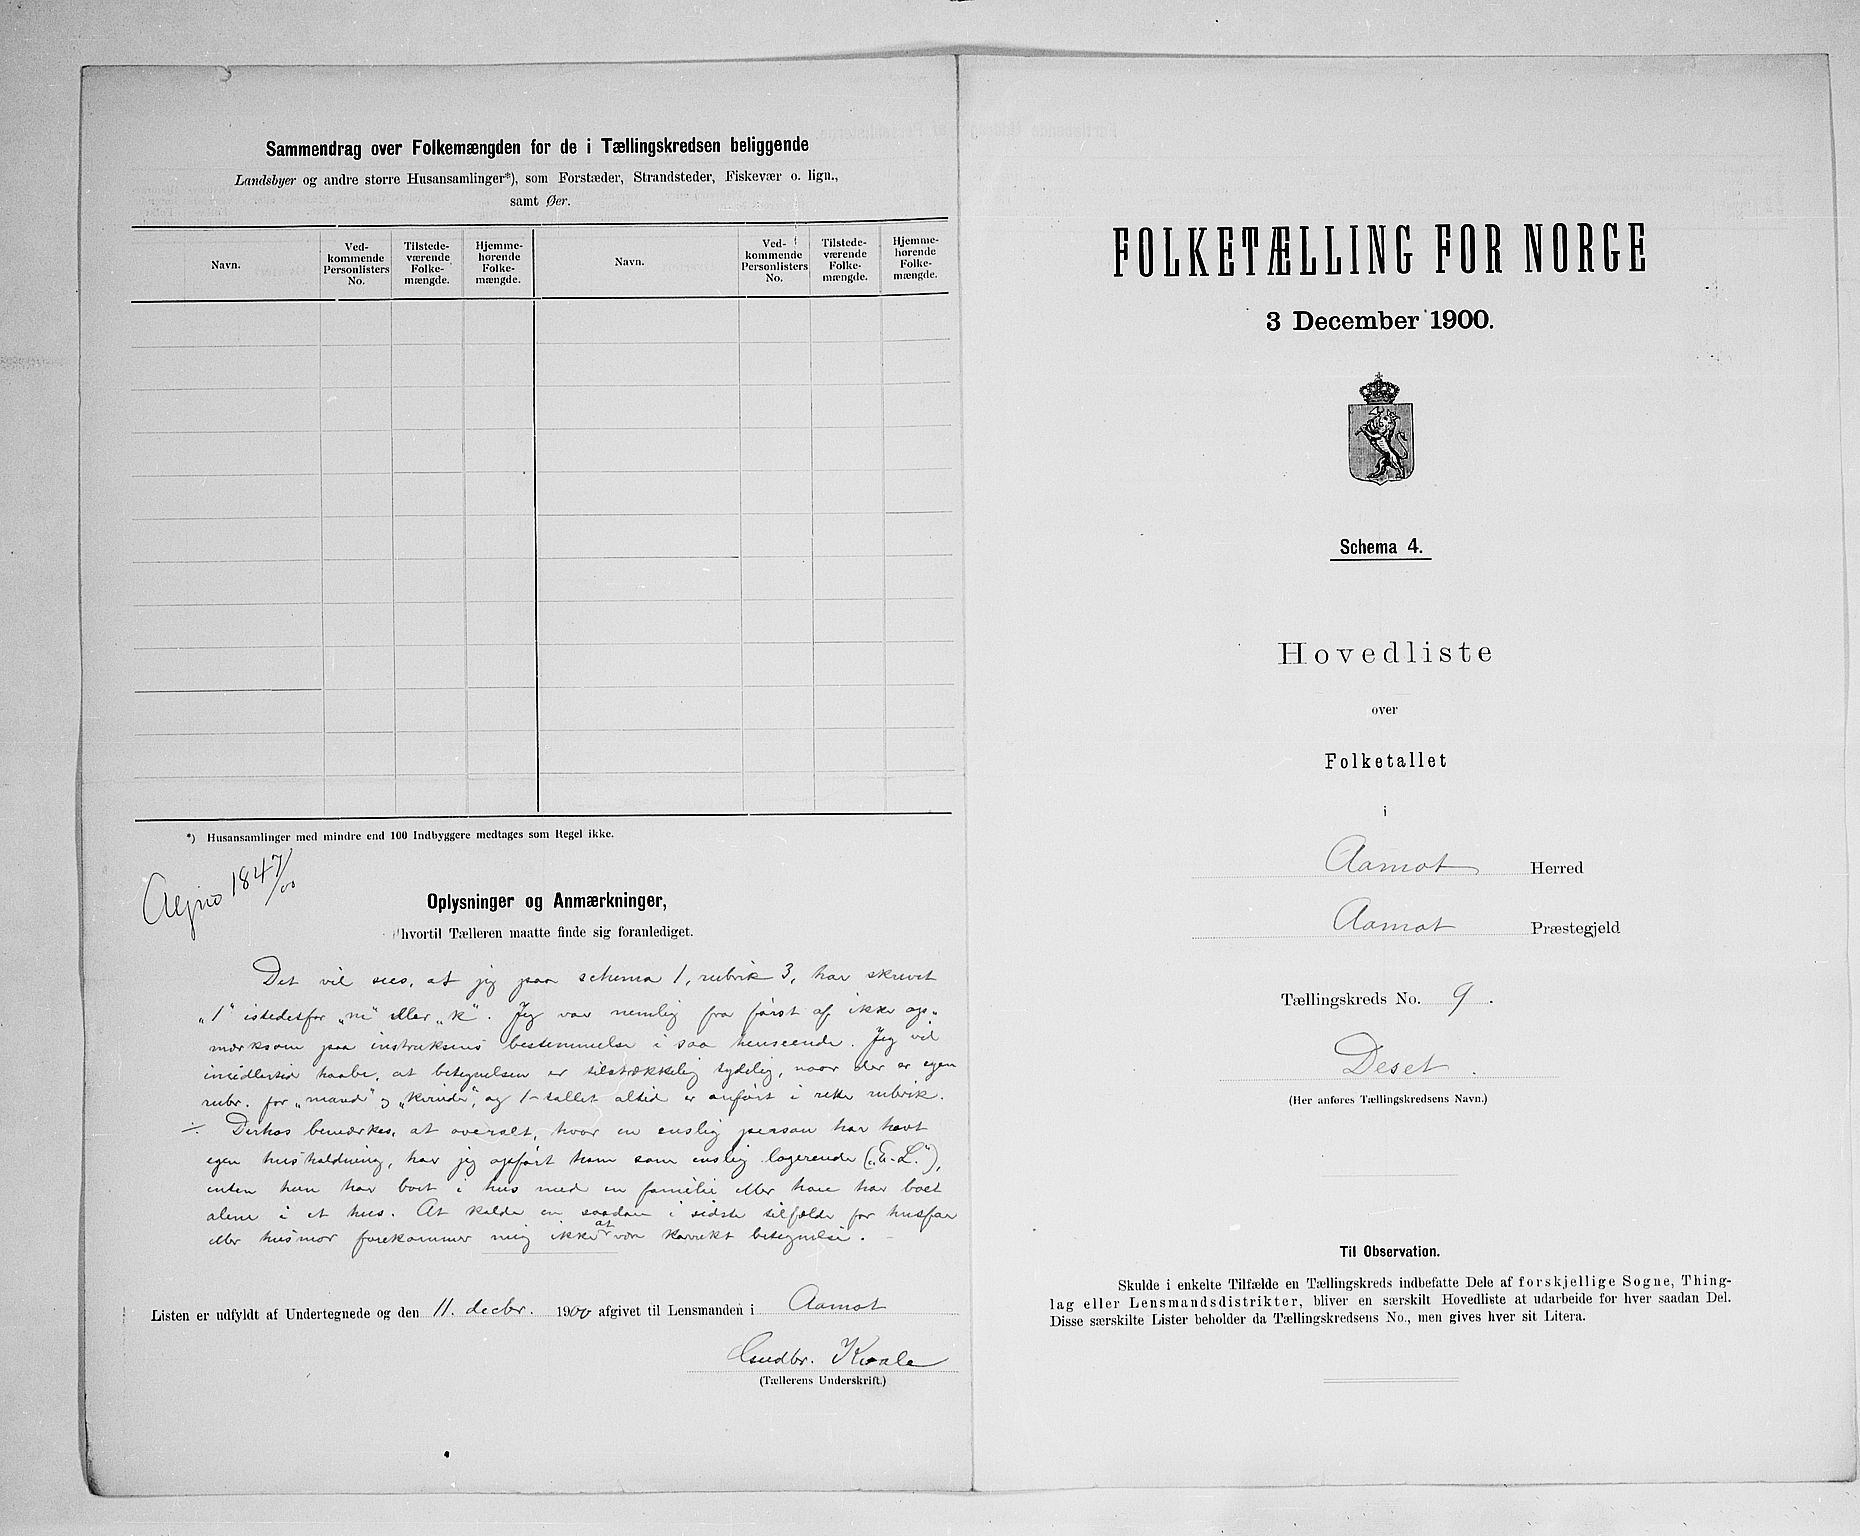 Sammendrag over Folkemængden for de i Tællingskredsen beliggende
Landsbyer og andre større Husansamlinger*), som Forstæder, Strandsteder, Fiskevær o. lign.,
samt Øer.
Navn.
Ved-
kommende
Personlisters
No.
Tilstede-
værende
Folke-
mængde.
Hjemme-
hørende
Folke-
mængde.
Navn.
Ved-
kommende
Personlisters
No.
Tilstede-
værende
Folke-
mængde.
Hjemme-
hørende
Folke-
mængde.
*) Husansamlinger med mindre end 100 Indbyggere medtages som Regel ikke.
1847/00
Oplysninger og Anmærkninger,
hvortil Tælleren maatte finde sig foranlediget.
Det vil sees, at jeg paa schema 1, rubrik 3, har skrevet
„1“ istedetfor „m“ eller „k“. Jeg var nemlig fra først af ikke op-
mærksom paa instruksens bestemmelse i saa henseende. Jeg vil
imidlertid haabe, at betegnelsen er tilstrækkelig tydelig, naar der er egen
rubr. for „mand“ og „kvinde“, og 1-tallet altid er anført i rette rubrik.
÷ Derhos bemærkes, at overalt, hvor en enslig person har havt
egen husholdning, har jeg opført ham som enslig logerende („E.-L.“),
enten han har boet i hus med en familie eller han har boet
alene i et hus. At kalde en saadan i sidste tilfælde for husfar
eller husmor forekommer mig ikke at være korrekt betegnelse.
Listen er udfyldt af Undertegnede og den 11. decbr. 1900 afgivet til Lensmanden i Aamot
Gudbr. Kvale
(Tællerens Underskrift.)
FOLKETÆLLING FOR NORGE
3 December 1900.
Schema 4.
Hovedliste
over
Folketallet
i
Aamot Herred
Aamot Præstegjeld
Tællingskreds No. 9.
Deset.
(Her anføres Tællingskredsens Navn.)
Til Observation.
Skulde i enkelte Tilfælde en Tællingskreds indbefatte Dele af forskjellige Sogne, Thing-
lag eller Lensmandsdistrikter, bliver en særskilt Hovedliste at udarbeide for hver saadan Del.
Disse særskilte Lister beholder da Tællingskredsens No., men gives hver sit Litera.